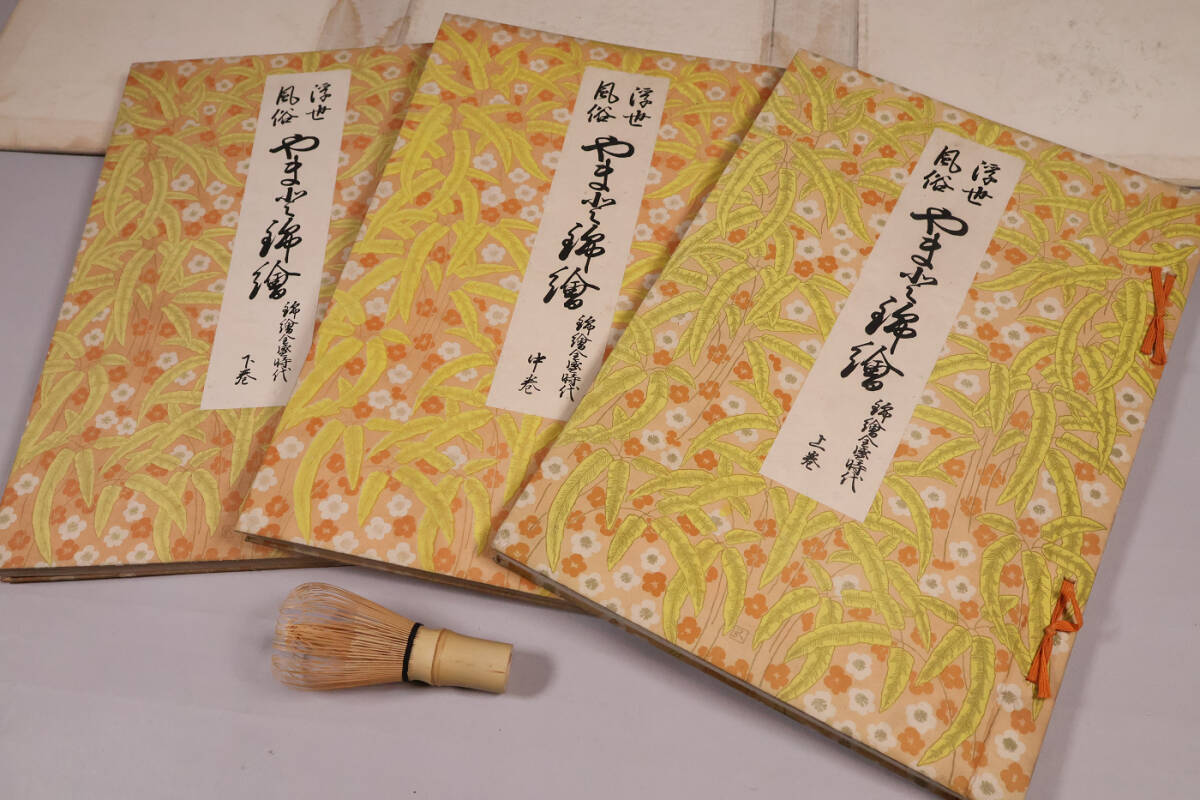 浮世
風俗
やまと錦繪
錦繪全盛時代
上巻
浮世
風俗
やまと錦繪
錦繪全盛時代
中巻
浮世
風俗
やまと錦繪
錦繪全盛時代
下巻